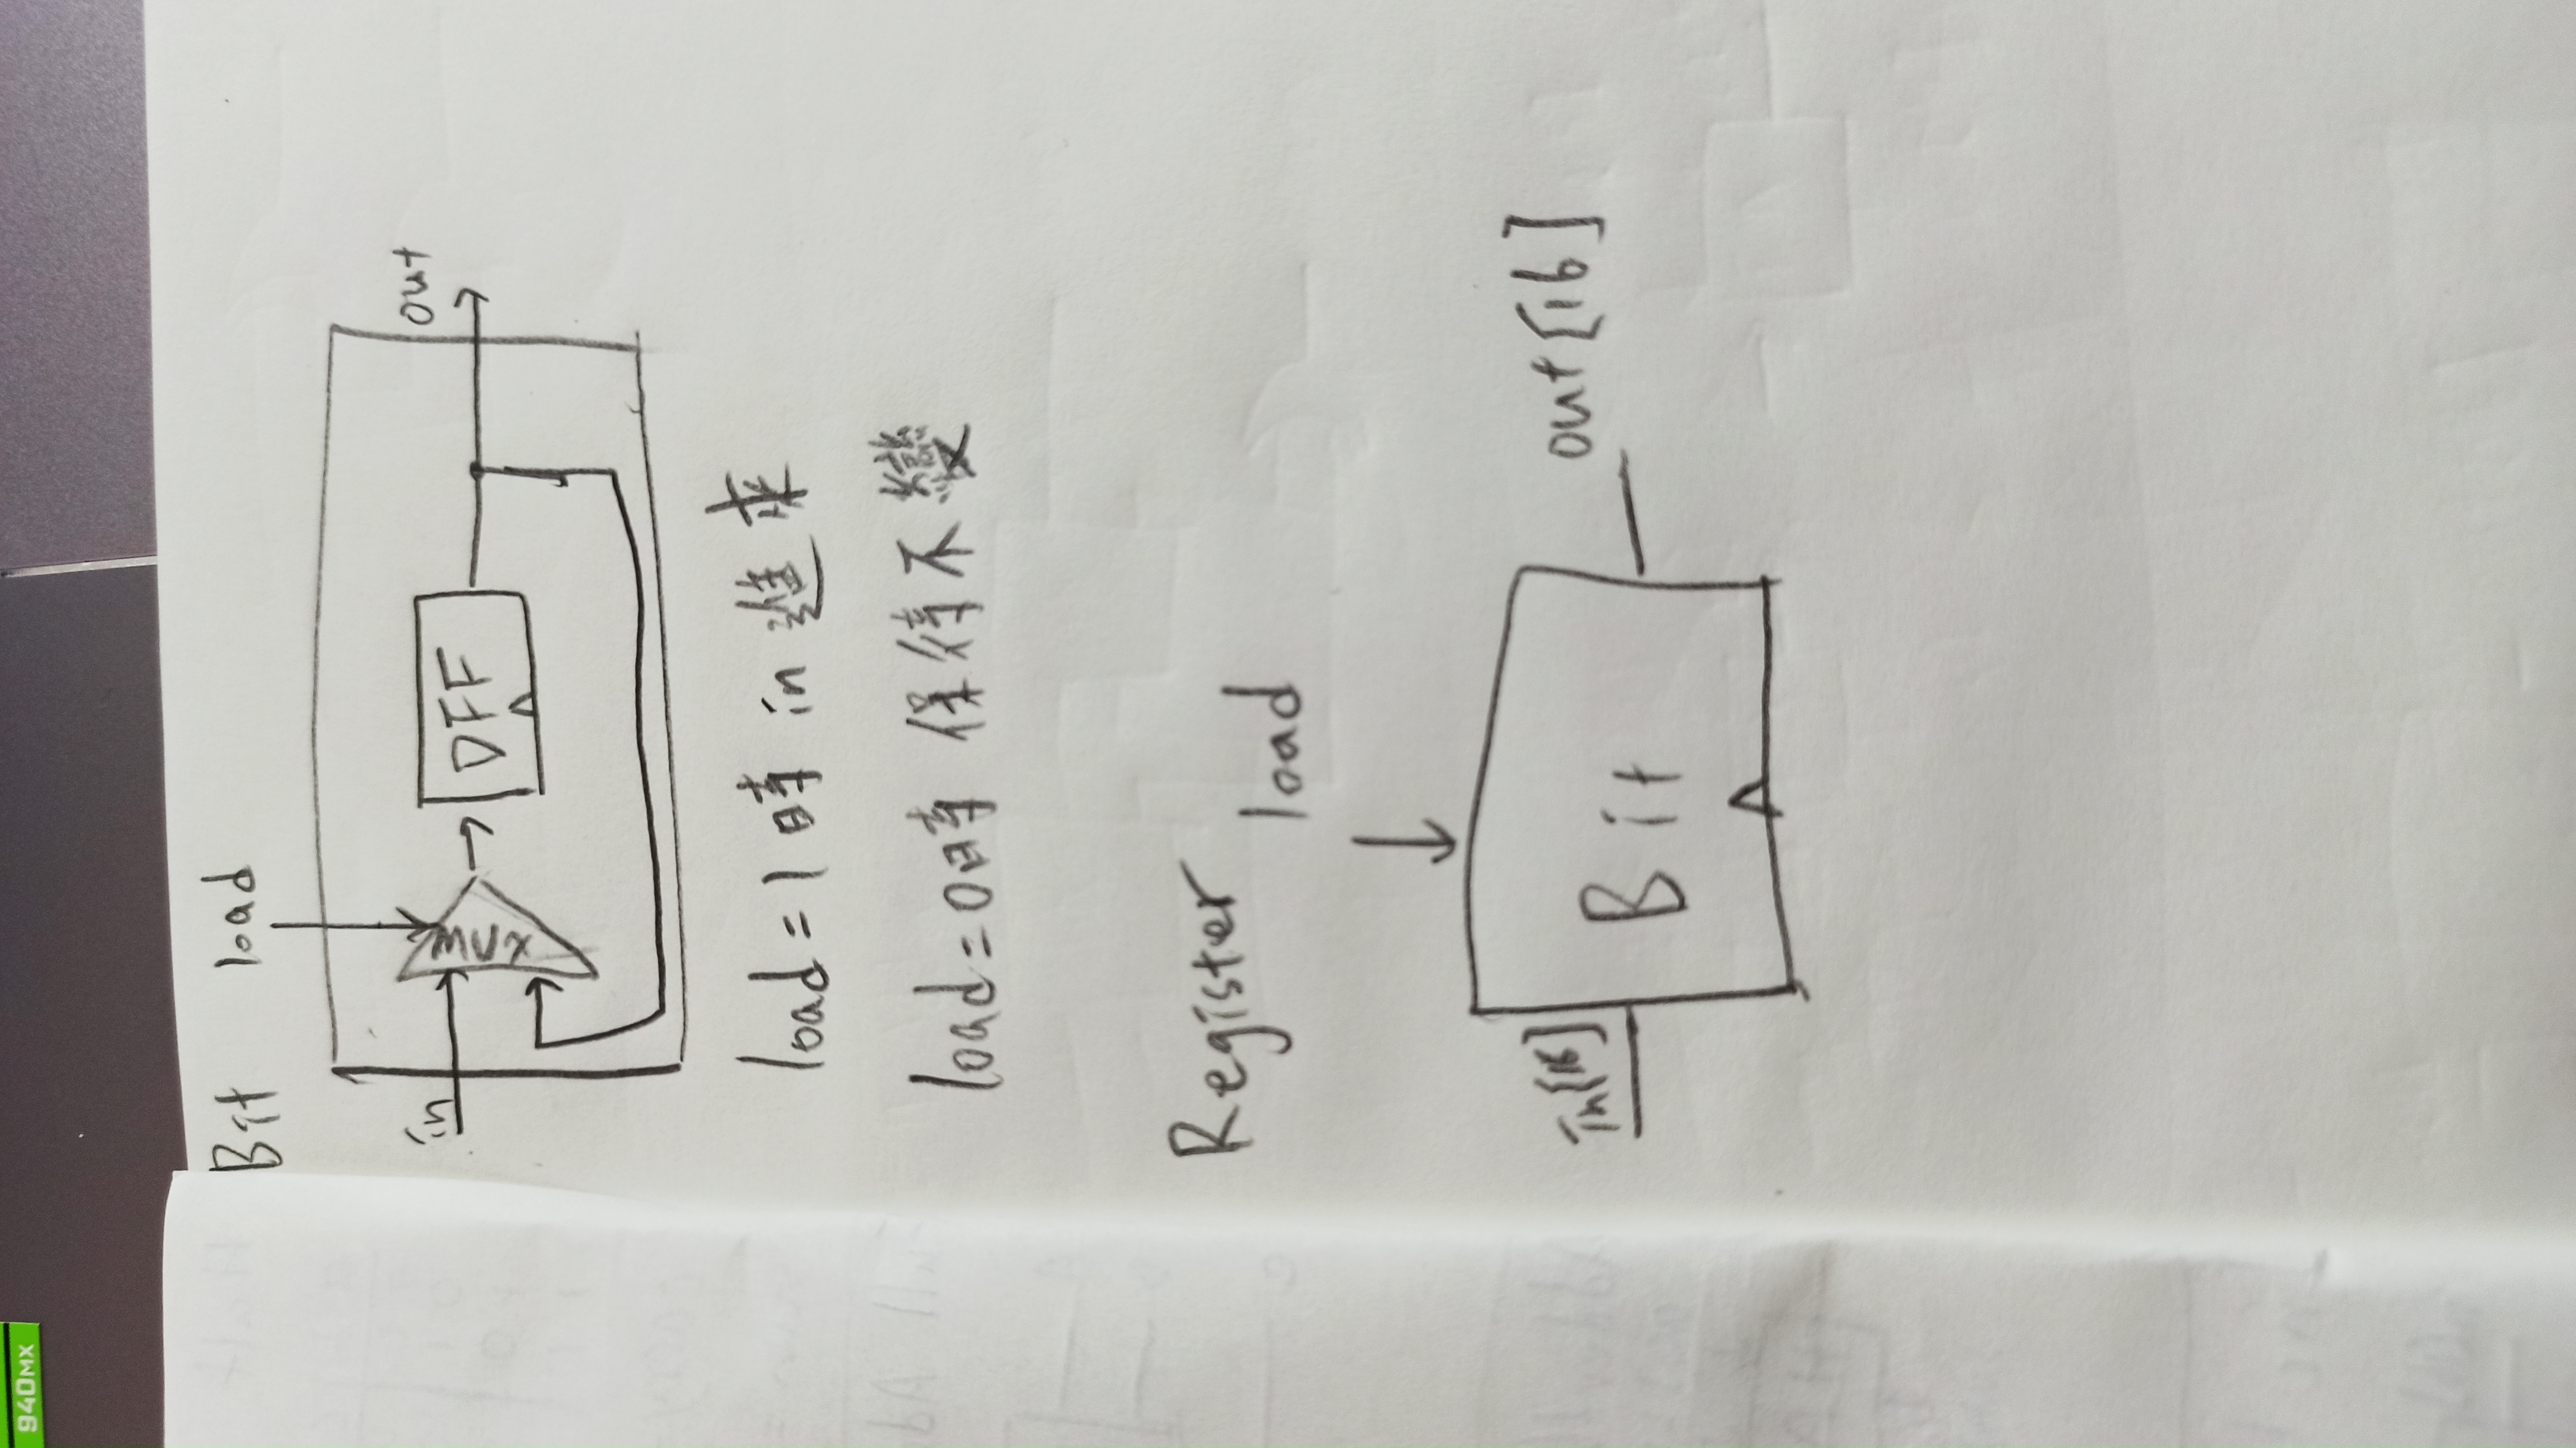 940MX
Bit
load
in
MUX
DFF
out
load=1時 in 進來
load=0時 保待不變
Register
load
in[16]
Bit
out[16]